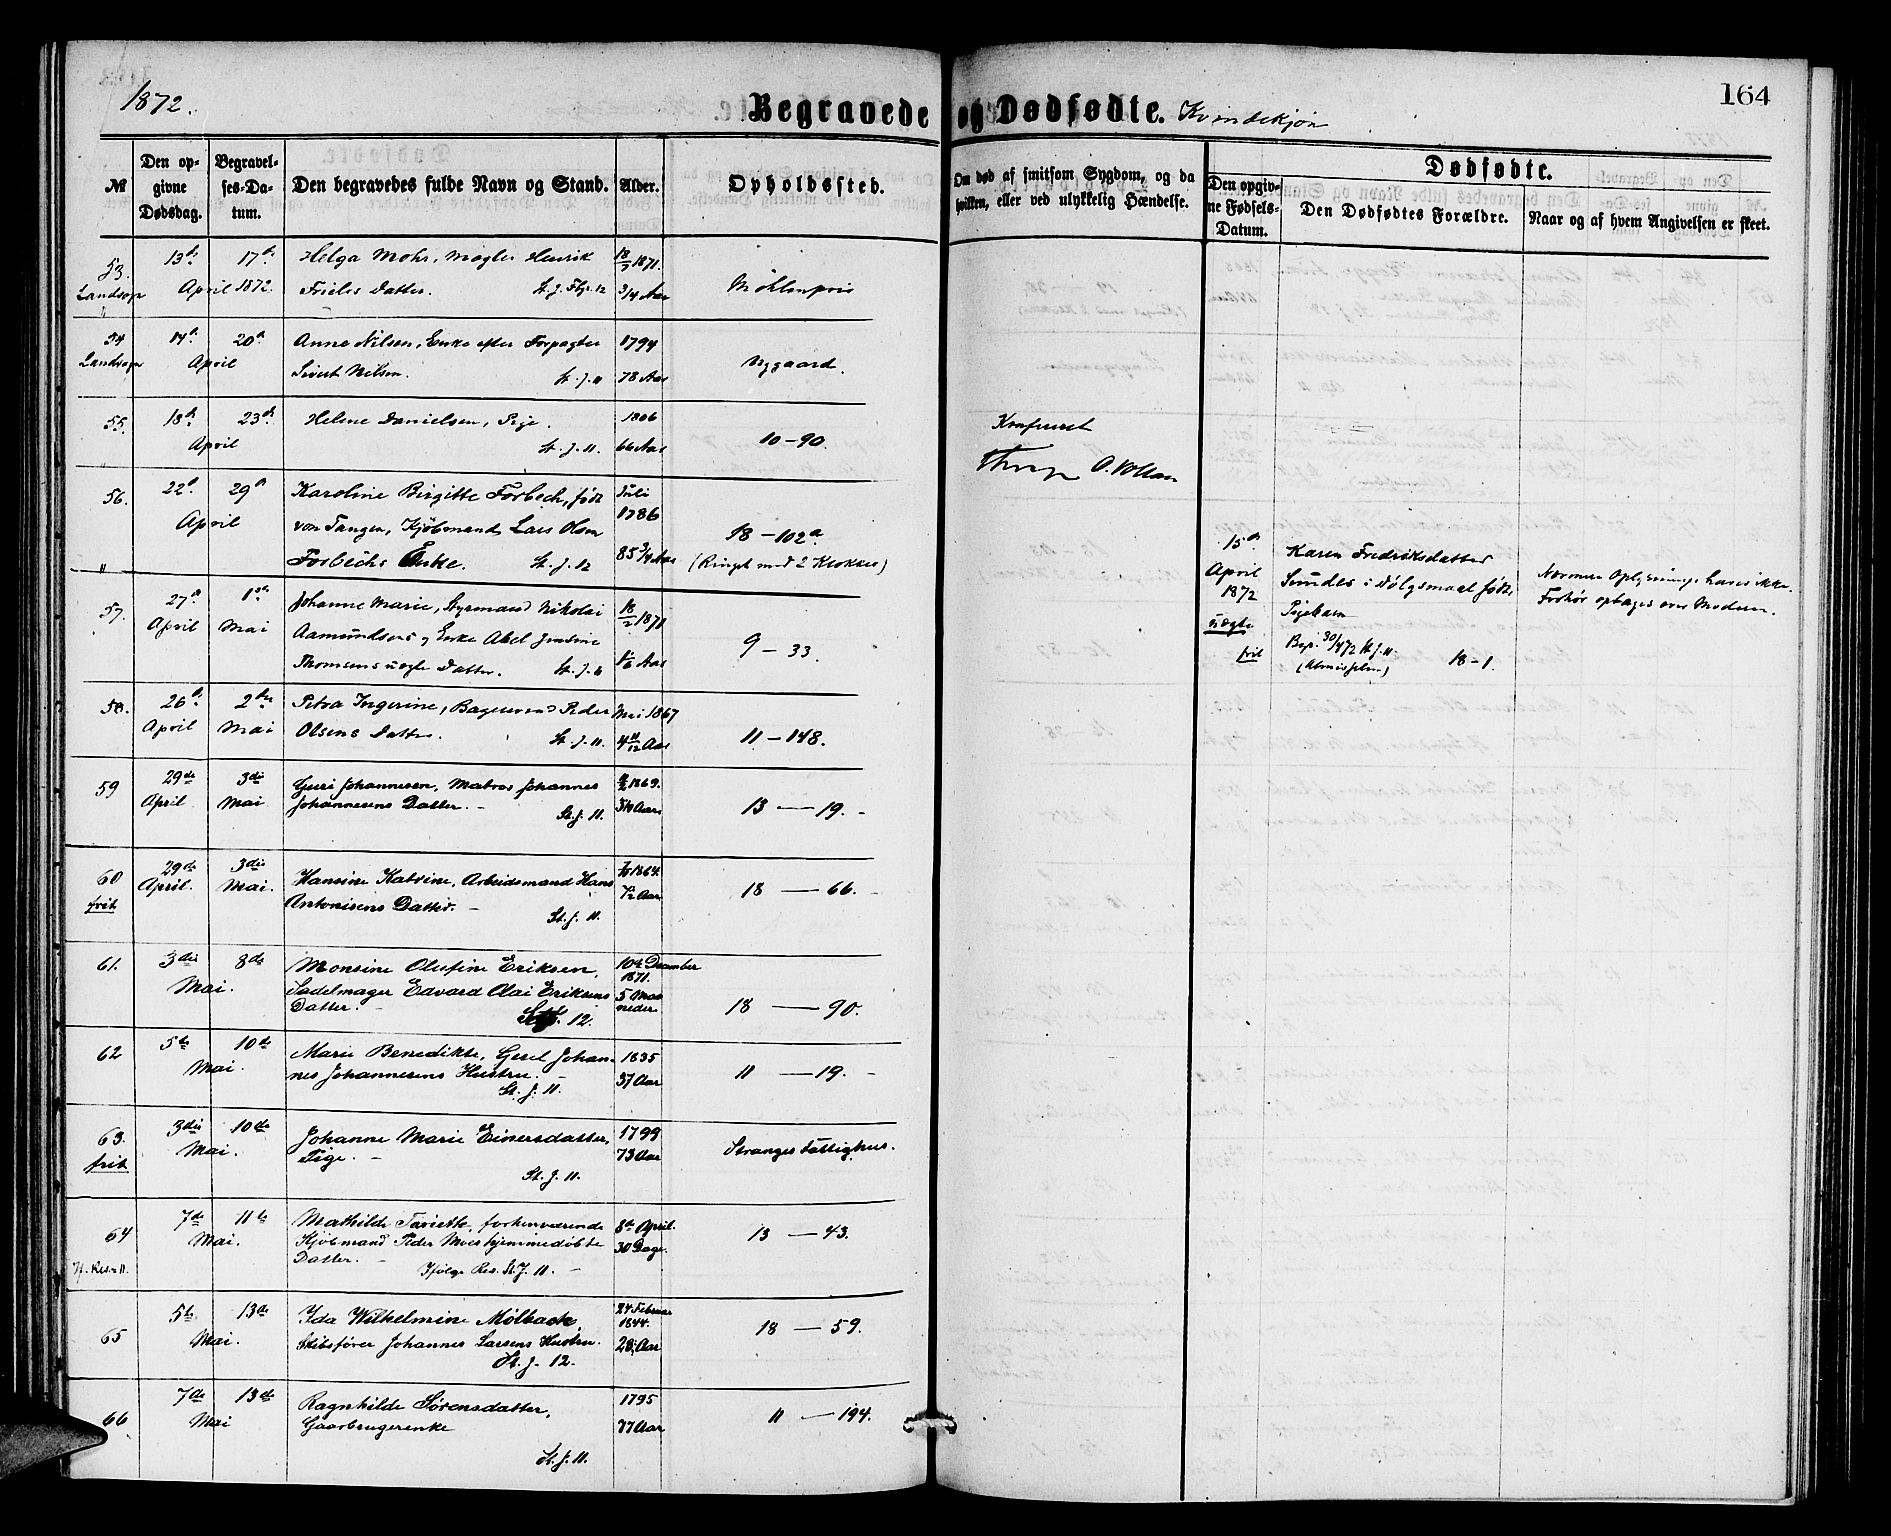 1872.
Begravede og Dødfødte. Kvindekjøn
164
№
Den opgivne Dødsdag.
Begravelses-Datum.
Den begravedes fulde Navn og Stand.
Alder.
Opholdssted.
Om død af smitsom Sygdom, og da hvilken, eller ved ulykkelig Hændelse.
Dødfødte.
Den opgivne Fødsels-Datum.
Den Dødfødtes Forældre.
Naar og af hvem Angivelsen er skeet.
53. 13de 17de Helga Mohr, Mægler Henrik 18/7 1871.
Landsogn April 1872. Frieles Datter. St. J. Fbr. 12 3/4 Aar Møhlenpris
54 14de 20de Anne Nilsen, Enke efter Forpagter 1794
Landsogn April Sivert Nilsen. St. J. 11 78 Aar Nygaard.
55. 18de 23de Helene Danielsen, Pige. 1806
April St. J. 11. 66 Aar 10-90.
56. 22de 29de Karoline Birgitte Forbech, født Juli
April von Tangen, Kjøbmand Lars Olsen 1786
Forbechs Enke. St. J. 12 85 3/4 Aar 18-102a
(Ringet med 2 Klokker)
57. 27de 1ste Johanne Marie, Styrmand Nikolai 18/2 1871
April Mai Aamundsens og Enke Abel Jensine
Thomsens uægte Datter. St. J. 11 1 1/6 Aar 9-33.
58. 26de 2den Petra Ingerine, Bagersvend Peder Mai 1867
April Mai Olsens Datter. St. J. 11. 4 11/12 Aar 11-148.
59 29de 3die Guri Johannesen, Matros Johannes 1869.
April Mai Johannesens Datter. - St. J. 11. Aar 13 - 19. -
60 29de 3die Hansine Katrine, Arbeidsmand Hans 1864.
frit April. Mai. Antonisens Datter. - St. J. 11. Aar 18 - 66. -
61. 3die 8de Monsine Olufine Eriksen, 10de December
1871.
Mai. Sadelmager Edvard Olai Eriksens 5 Maa-
Datter. - 12. neder. 18 - 90.
62 5te 10de Marie Benedikte, Gesel Johan- 1835
Mai. nes Johannesens Hustru. - 37 Aar 11 - 19. -
St. J. 11.
63. 3die 10de Johanne Marie Einersdatter, 1799
frit Mai. Pige. - 73 Aar Stranges Fattighus.
St. J. 11.
64 7de 11te Mathilde, forhenværende 8de April.
Mai. Kjøbmand Peder Moes hjemmedøbte 30 Dage. 13 - 43.
Datter. -
If. Res. 11. Ifølge Res. St. J. 11. -
65 5te. 13de Ida Wilhelmine Mølbach, 24 Februar
1844.
Mai. Skibsfører Johannes Larsens Hustru. 28 Aar 18 - 59.
St. J. 12.
66 7de 13de Ragnhilde Sørensdatter, 1795
Mai Gaardbrugerenke 77 Aar 11 - 194.
St. J. 11.
15de
April
1872
uægte
frit
Karen Fredriksdatter
Sundes i Dølgsmaal født,
Pigebarn
Begr. 30/4 72 St. J. 11.
18-1.
Nærmere Oplysninger haves ikke.
Forhør optages over Moderen.